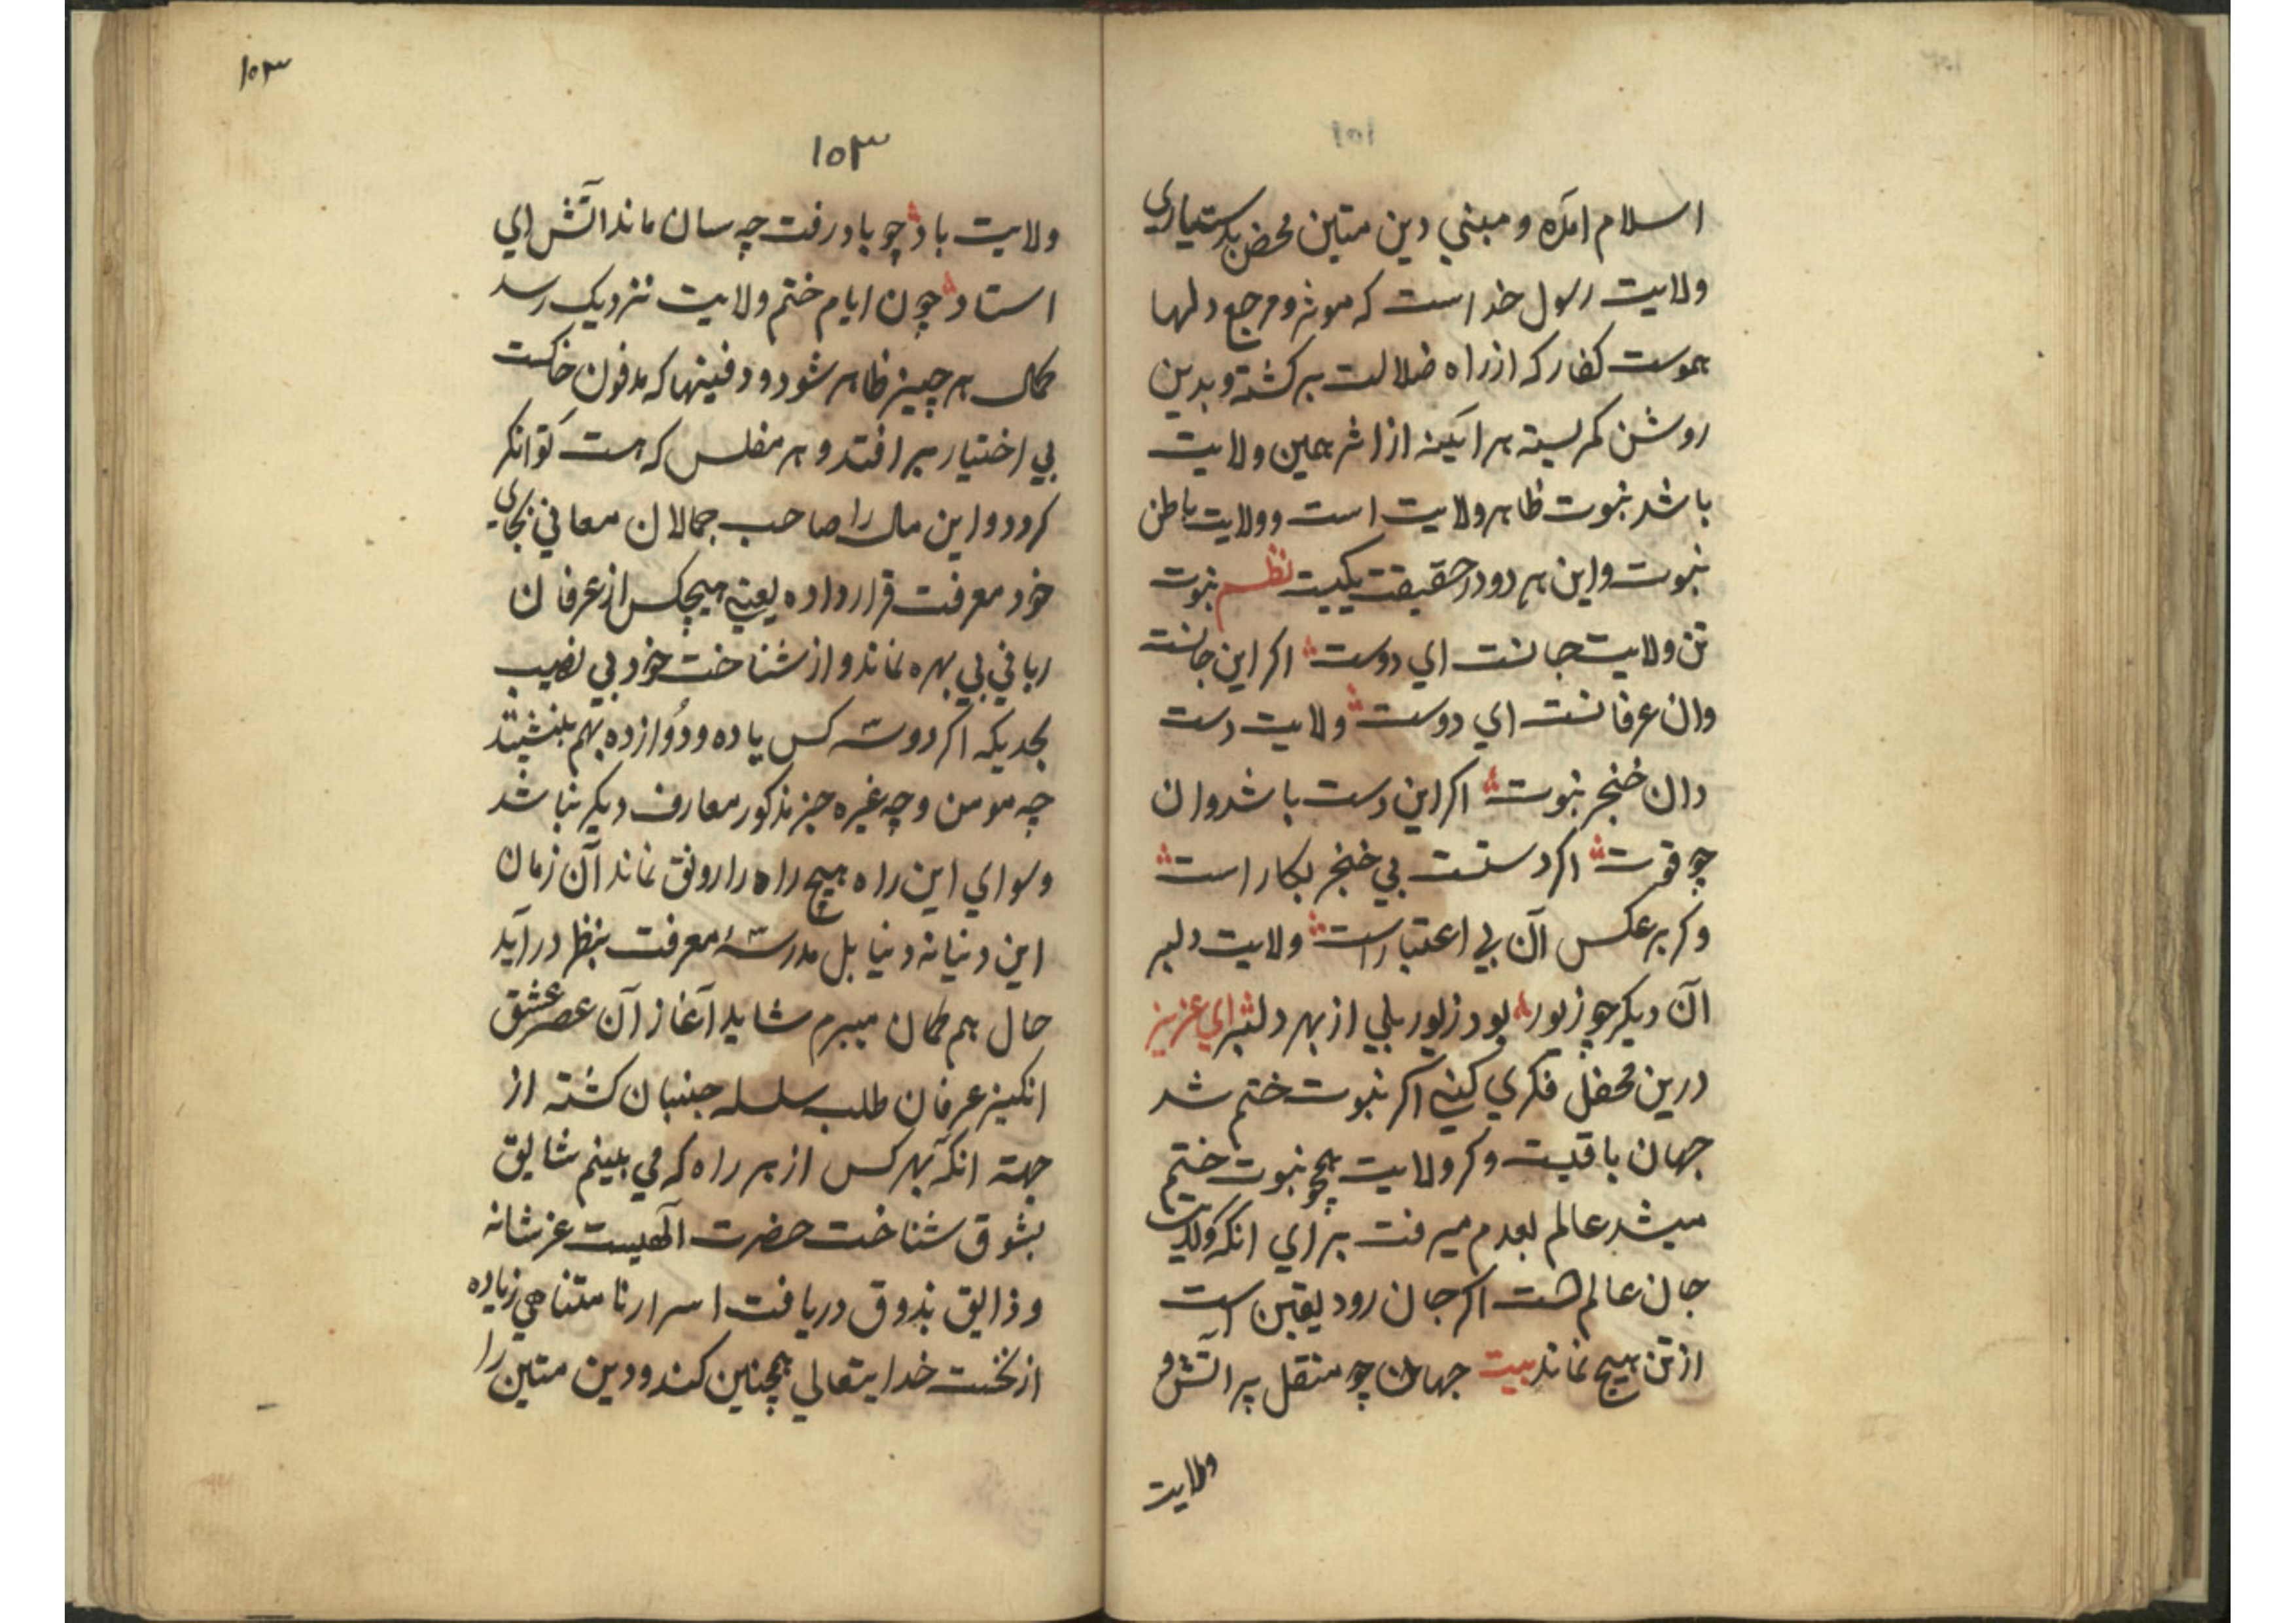 اسلام آمده و مبني دين متين محض بدستياري
ولايت رسول خداست كه موثر و مرجع دلها
هموست كفار كه از راه ضلالت بر كشته و بدين
روشن كمر بسته هر آئينه از اثر همين ولايت
باشد نبوت ظاهر ولايت است و ولايت باطن
نبوت و اين هر دو در حقيقت يكيست نظم نبوت
تن ولايت جانست اي دوست اكر اين جانست
وان عرفانست اي دوست ولايت دست
دان خنجر نبوت اكر اين دست باشد وان
چو قوت اكر دستست بي خنجر بكار است
وكر برعكس آن بي اعتبار است ولايت دلبر
آن ديكر چو زيور بود زيور بلي از بهر دلبر اي عزيز
درين محفل فكري كني اكر نبوت ختم شد
جهان باقيست وكر ولايت همچو نبوت ختم
ميشد عالم بعدم ميرفت براي انكه ولايت
جان عالم است اكر جان رود يقين است
از تن هيچ نماند بيت جهان چو منقل پر آتش و
ولايت
١٥٣
١٥٣
ولايت باد چو باد رفت چه سان ماند آتش اي
استاد چون ايام ختم ولايت نزديك رسد
كمال هر چيز ظاهر شود و دفينها كه مدفون خاكست
بي اختيار بر افتد و هر مفلس كه هست توانكر
كردد و اين مال را صاحب جمالان معاني بجاي
خود معرفت قرار داده يعني هيچكس از عرفان
رباني بي بهره نماند و از شناخت خود بي نصيب
بحديكه اكر دو سه كس يا ده و دوازده بهم بنشينند
چه مومن و چه غيره جز مذكور معارف ديكر نباشد
و سواي اين راه هيچ راه را رونق نماند آن زمان
اين دنيا نه دنيا بل مدرسۀ معرفت بنظر در آيد
حال هم كمان ميبرم شايد آغاز آن عصر عشق
انكيز عرفان طلب سلسله جنبان كشته از
جهته انكه بهر كس از هر راه كه مي بينم شايق
بشوق شناخت حضرت الهيست عز شانه
و ذايق بذوق دريافت اسرار نا متناهي زياده
از نخست خدايتعالي همچنين كند و دين متين را